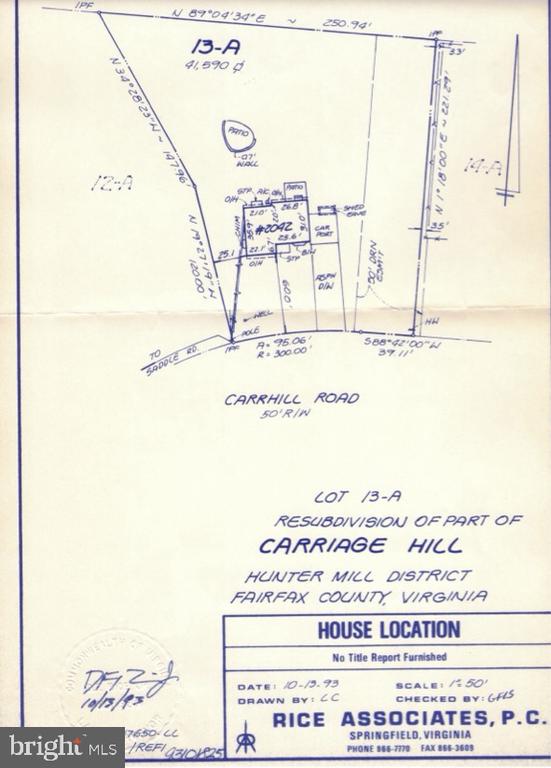 IPF
N 89°04'34"E ~ 250.94'
IPF
33'
13-A
41,590
N 34°28'23"W ~ 147.96'
N 1°18'00"E ~ 221.29'
PATIO
.07'
WALL
12-A
14-A
STP.
A/C
PATIO
O/H
21.0'
20'
26.8'
SHED
EAVE
CHIM
35.9'
#2042
31.0'
CAR
PORT
35'
N 12°27'19"W
100.00'
25.1
22.1'
6.7'
25.6'
B/W
O/H
STP
50' DRN
ESM'T
60.0'
ASPH
D/W
WELL
POLE
HW
TO
SADDLE RD.
IPF
A = 95.06'
R = 300.00'
S88°42'00"W
39.11'
CARRHILL ROAD
50' R/W
LOT 13-A
RESUBDIVISION OF PART OF
CARRIAGE HILL
HUNTER MILL DISTRICT
FAIRFAX COUNTY, VIRGINIA
HOUSE LOCATION
No Title Report Furnished
DATE: 10-13-93
SCALE: 1"=50'
DRAWN BY: LC
CHECKED BY:
RICE ASSOCIATES, P.C.
SPRINGFIELD, VIRGINIA
PHONE 866-7770 FAX 866-3609
10/13/93
7650-LL
/REFI
bright MLS